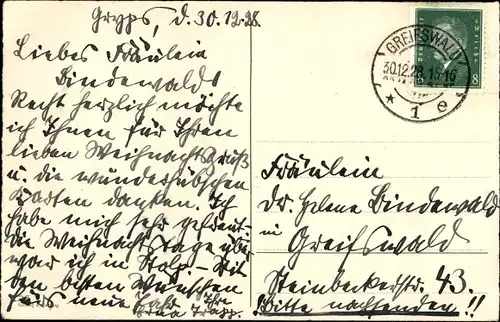 Gryps, d. 30.12.28.
Liebes Fräulein
Bindewald!
Recht herzlich möchte
ich Ihnen für Ihren
lieben Weihnachtsgruß
u. die wunderhübschen
Karten danken. Ich
habe mich sehr gefreut.
die Weihnachtstage über
war ich in Stolp. – Mit
den besten Wünschen
fürs neue Jahr Ihre
GREIFSWALD
30.12.28. 15-16
* 1 e
8
Fräulein
Dr. Helene Bindewald
in Greifswald
Steinbeckerstr. 43.
! Bitte nachsenden!!